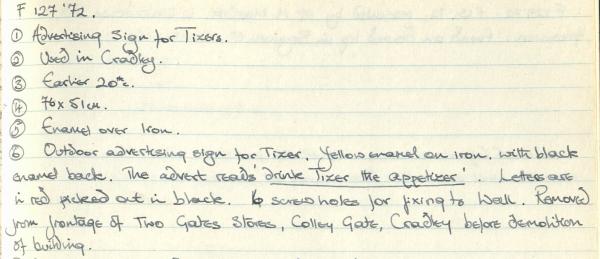 F 127 '72.
① Advertising Sign for Tizers.
② Used in Cradley.
③ Earlier 20thc.
④ 76 x 51 cm.
⑤ Enamel over Iron.
⑥ Outdoor advertising sign for Tizer. Yellow enamel on iron, with black
enamel back. The advert reads 'drink Tizer the appetizer'. Letters are
in red picked out in black. 6 screw holes for fixing to wall. Removed
from frontage of Two Gates Stores, Colley Gate, Cradley before demolition
of building.